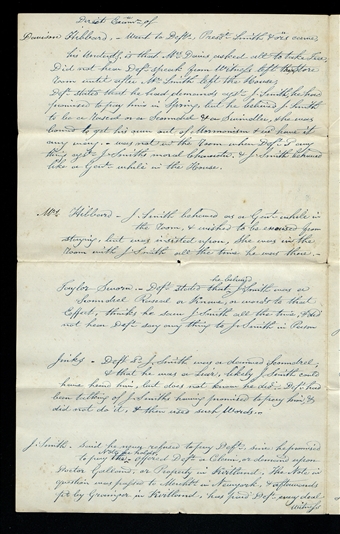 Direct Examn of
Davison Hibbard. - Went to Defts. Presdt. Smith & ors came
his Assidg. & that Mrs Davis asked all to take Tea,
Did not hear Deft speak from Witness left the fore
Room until after Mr Smith left the House,
Deft states that he had demands agst J. Smith, he had
promised to pay him in Spring, but he believed J. Smith
to be a Rascal or a Scoundrel & a Swindler, she was
bound to get his own out of Mormonism & so have it
any way, - was not in the Room when Deft sd any
thing agst J. Smiths moral Character, & J. Smith behaved
like a Gent while in the House.
Mrs Hibbard - J. Smith behaved as a Gent while in
the Room, & wished to be excused from
staying, but was insisted upon, She was in the
Room with J. Smith all the time he was there. -
he believed
Taylor Sworn - Deft stated that J. Smith was a
Scoundrel Rascal or Knave, or words to that
Effect, thinks he seen J. Smith all the time, & did
not hear Deft say any thing to J. Smith in Person
Jinks, - Deft sd J. Smith was a damned Scoundrel,
& that he was a Liar, likely J. Smith could
have heard him, but does not know he did, - Deft had
been talking of J. Smiths having promised to pay him, &
did not do it, & then used such Words. -
J. Smith. said he never refused to pay Deft. since he promised
Note, for helpt.
to pay the offered Deft a Claim, or demand upon
Doctor Galland, or Property in Kirtland. The Note in
question was passed to Merchts in Newyork, & afterwards
pd by Granger in Kirtland, has paid Deft. every deal
Witness